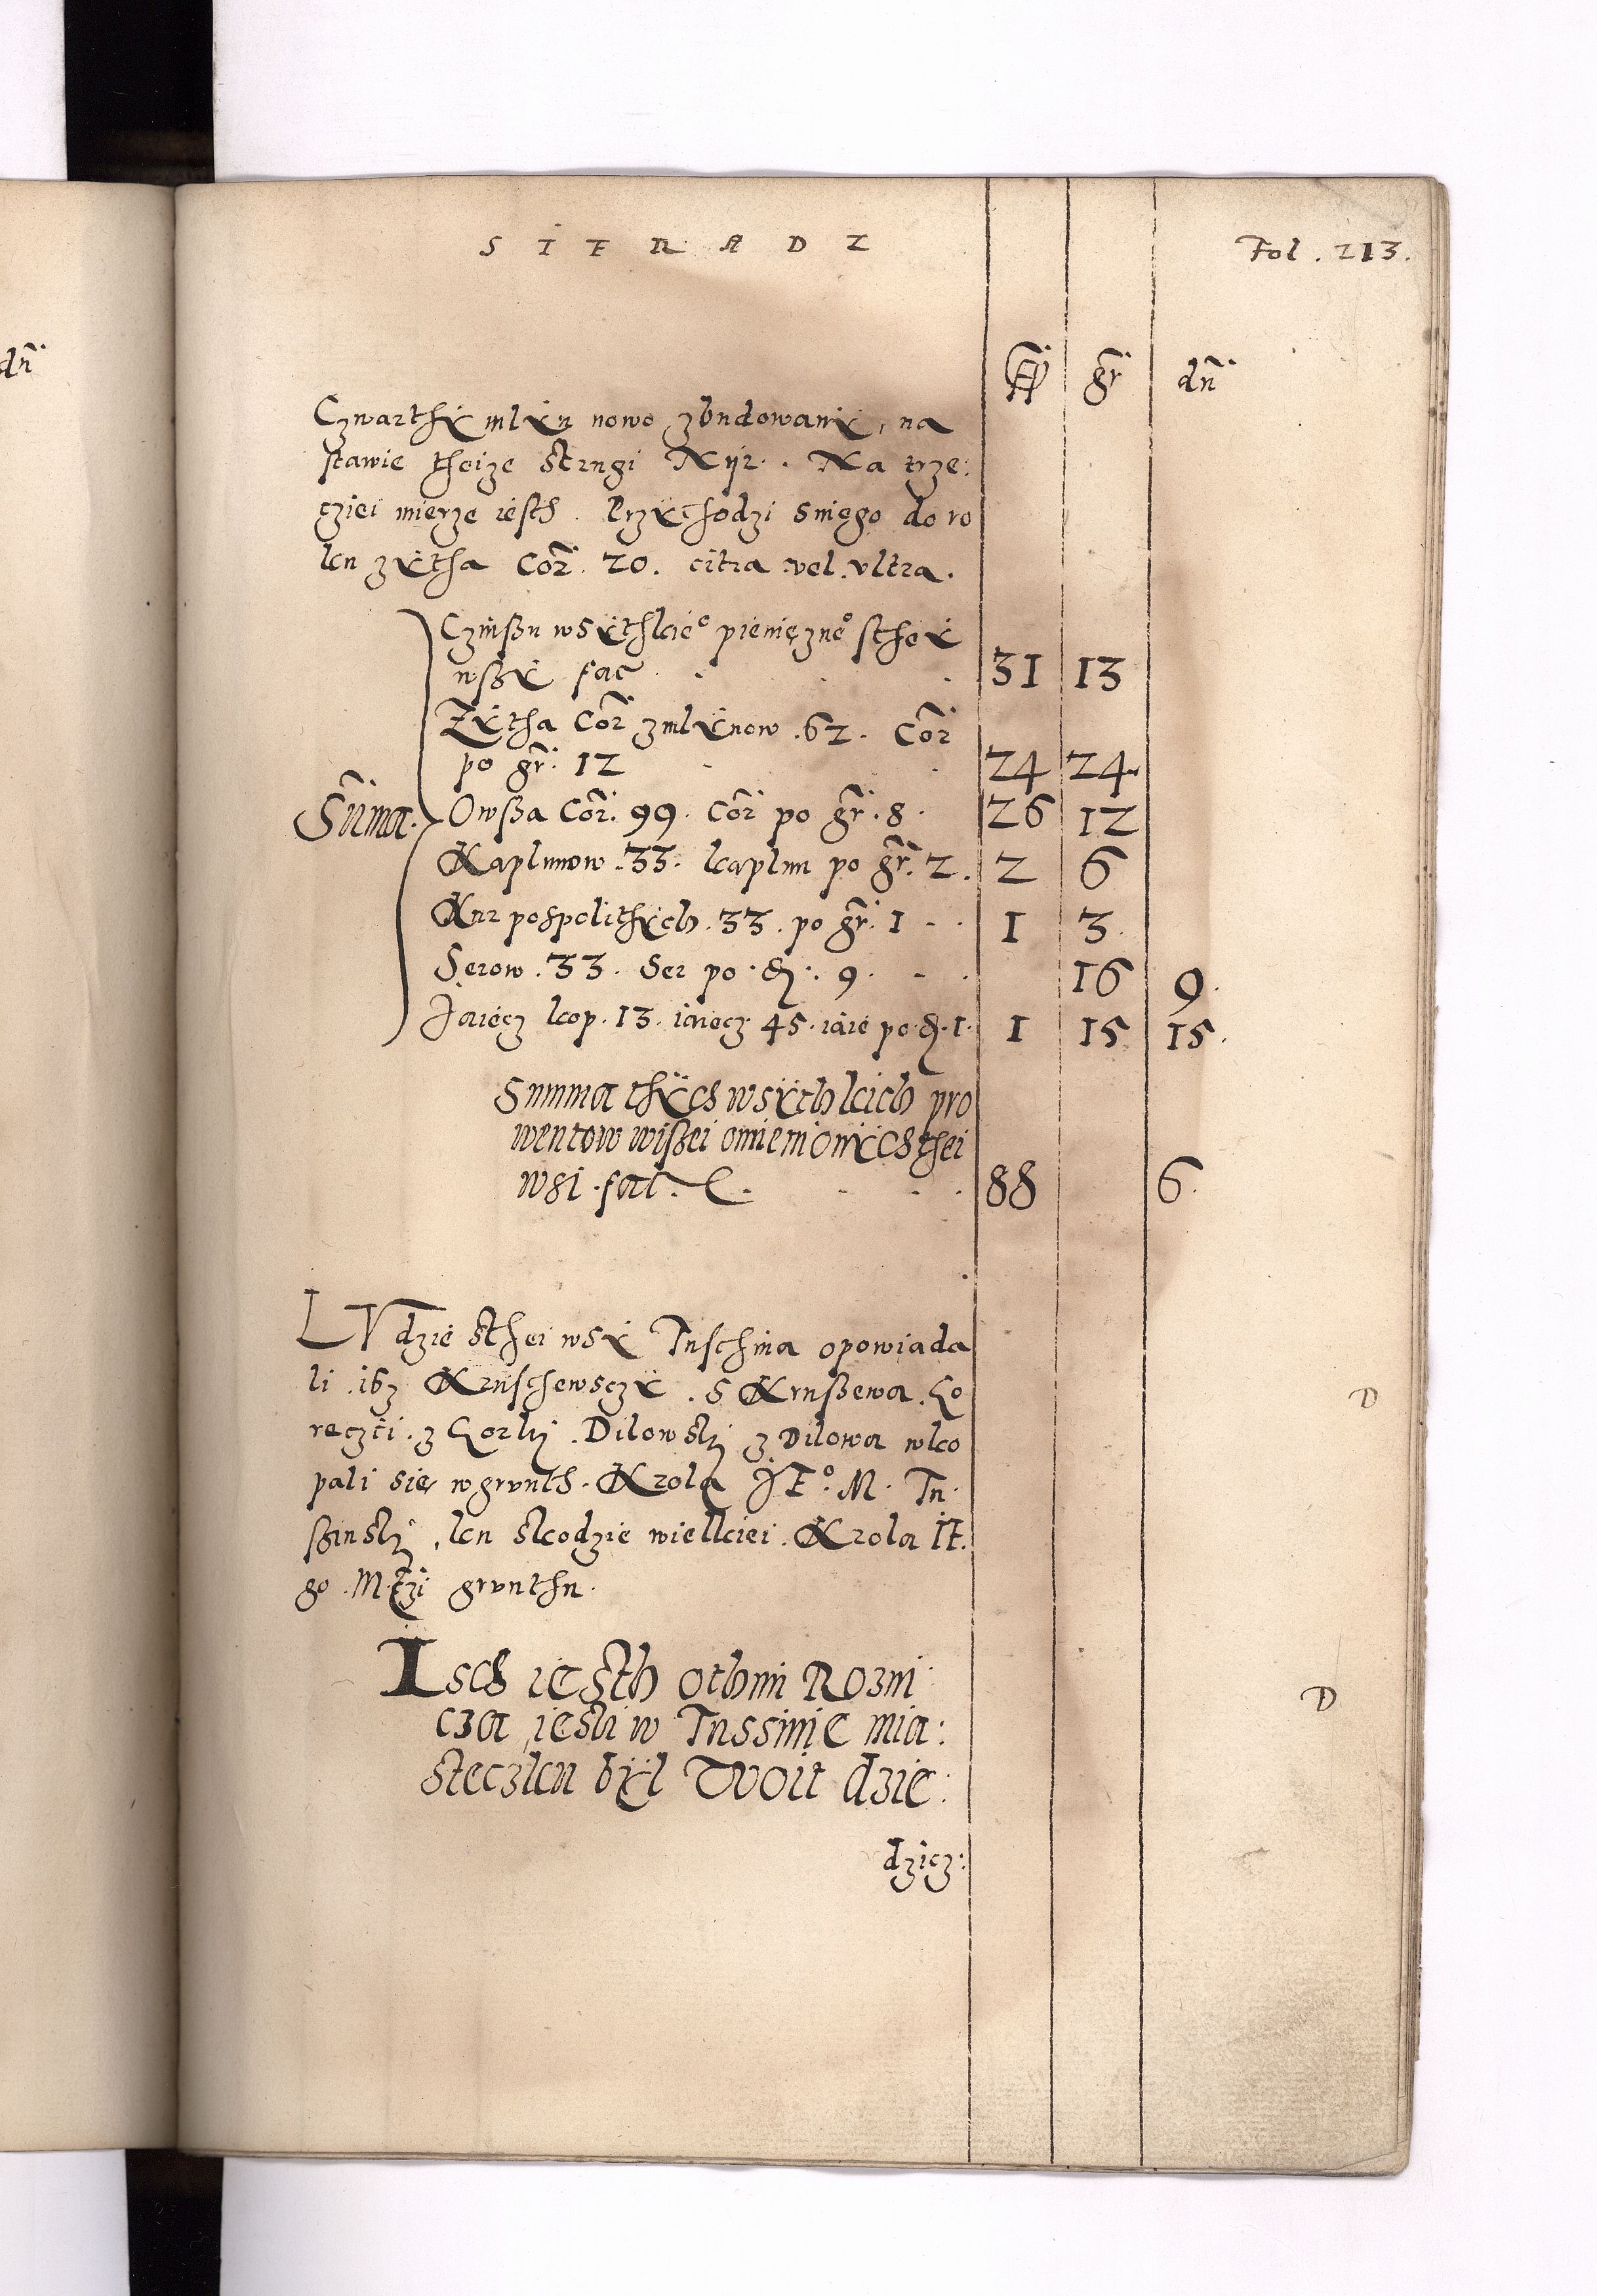 SIERADZ
Fol. 213.
fl gr dn
Czwarthÿ mlÿn nowo zbudowanÿ, na
stawie theize strugi Nyr. Na trze:
cziei mierze iesth. Przÿchodzi sniego do ro
ku zÿtha Cor. 20. citra vel vltra.
Czinßu wsÿthkie° pieniężne° stheÿ
wßÿ fac 31 13
Zÿtha Cor zmlÿnow .62. Cor
po gr. 12 24 24
Suma. Owßa Cor. 99. Cor po gr. 8. 26 12
Kaplunow .33. kaplun po gr. 2. 2 6
Kur pospolithÿch .33. po gr. 1 - - 1 3.
Serow .33. Ser po d. 9. - . 16 9.
Jaiecz kop. 13. iaiecz 45. iaie po d. 1. 1 15 15.
Summa thÿch wsÿthkich pro
wentow wißei omienionÿch thei
wsi . fac. 88 6.
LVdzie sthei wsÿ Tuschina opowiada
li .isz Kruschewsczÿ . s Krußewa . Go
reczci . z Gorki . Dilowski z Dilowa wko
pali się w grvnth . Krola JE° . M . Tu
ßinski , ku skodzie wielkiei . Krola IE.
go . M.czi grvnthu.
Isch iesth othim Rozni
cza , iesli w Tussinie mia:
steczku bÿl Tvoit dzie:
dzicz:
D
D
dn